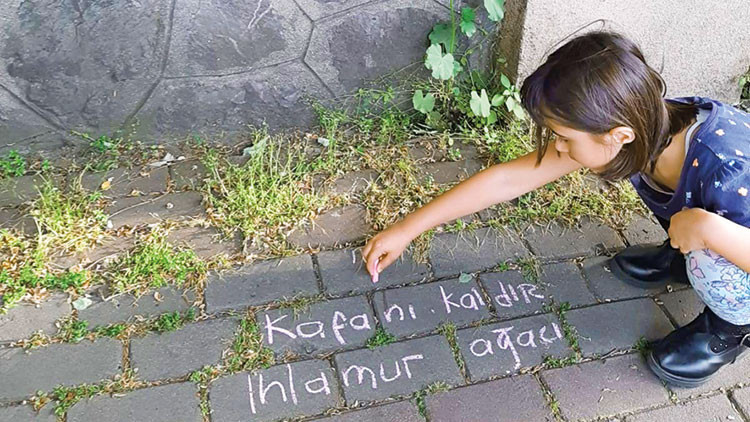 Kafanı kaldıR
Ihlamur ağacı